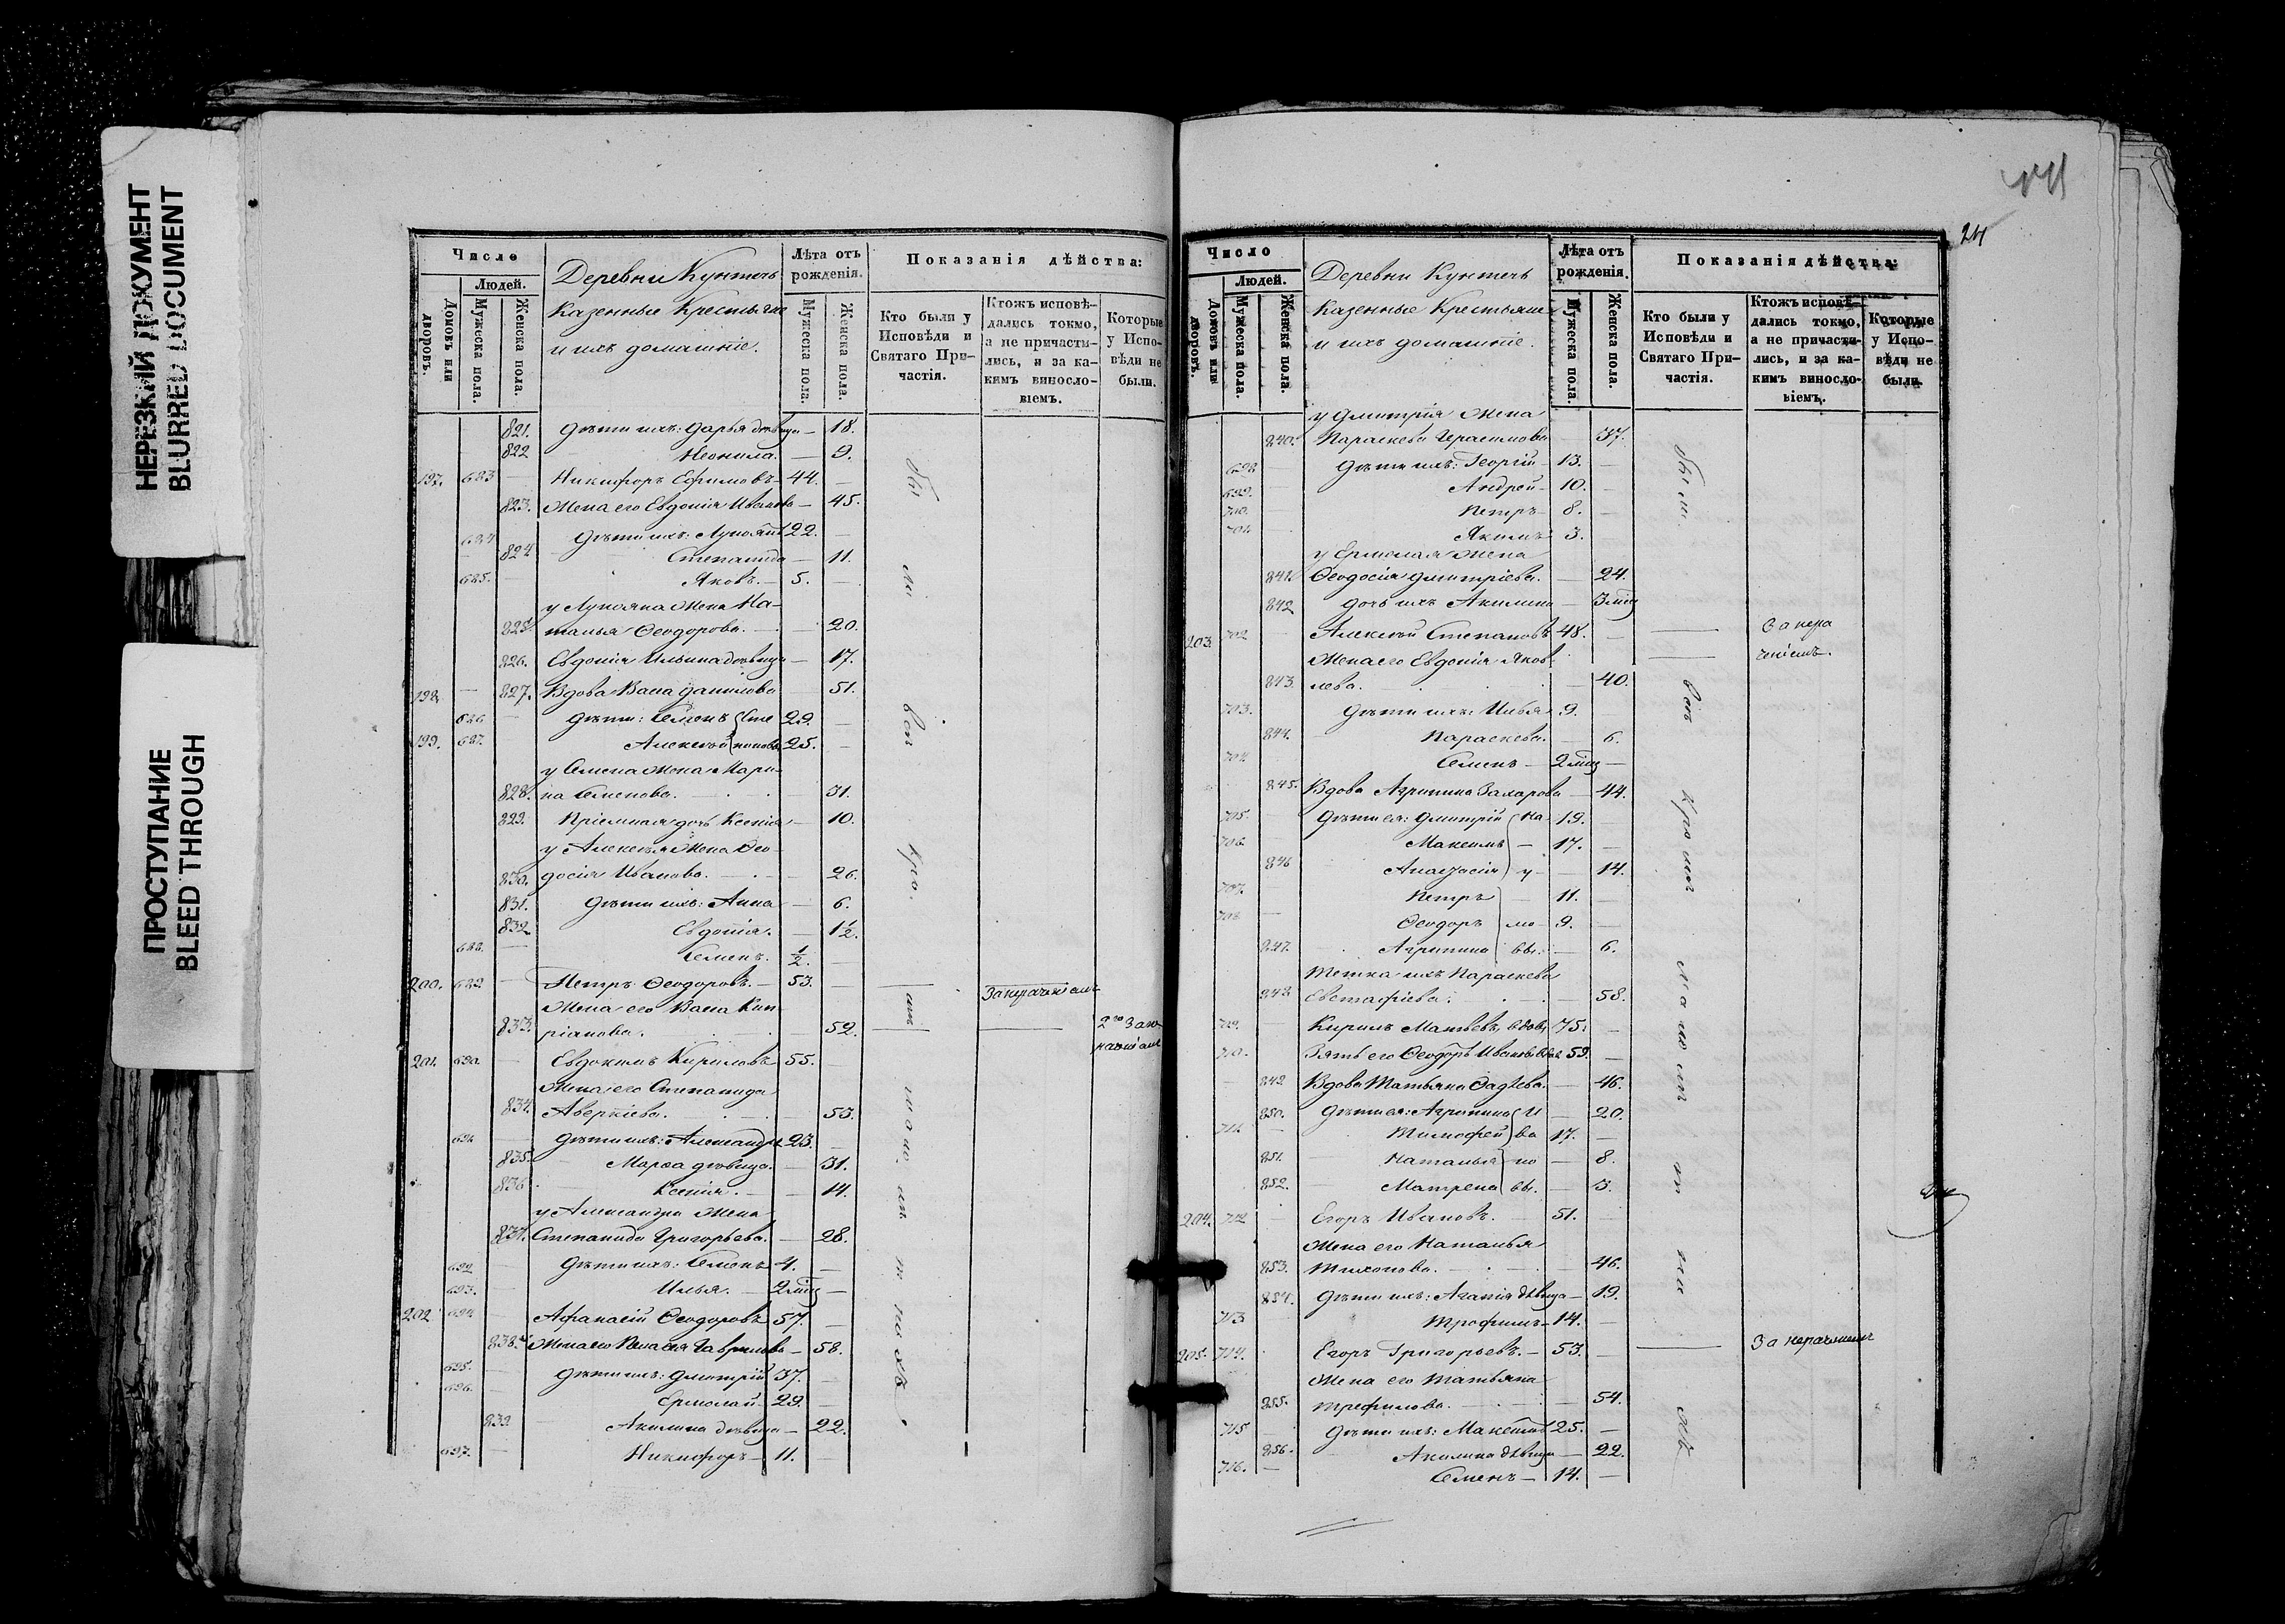 НЕРЕЗКИЙ ДОКУМЕНТ
BLURRED DOCUMENT
ПРОСТУПАНИЕ
BLEED THROUGH
Число
Людей.
Домовъ или дворовъ.
Мужеска пола.
Женска пола.
Деревни Кунтечь
Казенные Крестьяне
и ихъ домашніе.
Лѣта отъ рожденія.
Мужеска пола.
Женска пола.
Показанія дѣйства:
Кто были у Исповѣди и Святаго Причастія.
Ктожъ исповѣдались токмо, а не причастились, и за какимъ винословіемъ.
Которые у Исповѣди не были.
821. Дѣти ихъ: Дарья дѣвица — 18.
822 Неонила. — 9.
197. 683 — Никифоръ Ефимовъ — 44. —
823. Жена его Евдокія Иванова — 45.
Дѣти ихъ: 22. —
824 Степанида — 11.
685. — Яковъ. — 5. —
у Лукояна жена На-
825. талья Ѳеодорова. — 20.
826. Евдокія Ильина дѣвица — 17.
198. — 827. Вдова Васса Данилова — 51.
686. — Дѣти: Семенъ 29. —
199. 687. Алексѣй 25. —
у Семена жена Мари-
828. на Семенова. — 31.
829. Пріемная дочь Ксенія — 10.
у Алексѣя жена Ѳео-
830. досія Иванова. — 26.
831. Дѣти ихъ: Анна — 6.
832 Евдокія. — 1½.
688. — Семенъ. ½. —
200. 689. — Петръ Ѳеодоровъ. — 53. — За нерачніемъ
Жена его Васса Кип-
833. ріанова. 52.
201. 690. — Евдокимъ Кириловъ 55. —
Жена его Степанида
834. Аверкіева. 53.
691 — Дѣти ихъ: Александръ 23. —
835. Марѳа дѣвица. — 31.
836. Ксенія. — 14.
у Александра жена
837. Степанида Григорьева. — 28.
692 — Дѣти ихъ: Семенъ 4. —
693. — Илья. — 2 мѣц —
202 694 — Афанасій Ѳеодоровъ 57. —
838. Жена его Гаврилова — 58.
695. — Дѣти ихъ: Дмитрій 37. —
696. — Ермолай — 29. —
839 Акилина дѣвица — 22.
697. — Никифоръ — 11. —
24
Число
Людей.
Домовъ или дворовъ.
Мужеска пола.
Женска пола.
Деревни Кунтечь
Казенные Крестьяне
и ихъ домашніе.
Лѣта отъ рожденія.
Мужеска пола.
Женска пола.
Показанія дѣйства:
Кто были у Исповѣди и Святаго Причастія.
Ктожъ исповѣдались токмо, а не причастились, и за какимъ винословіемъ.
Которые у Исповѣди не были.
у Дмитрія жена
840. Параскева Герасимова 37.
698 Дѣти ихъ: Георгій — 13. —
699. Андрей — 10. —
700. Петръ — 8. —
701. Якимъ 3. —
у Ермолая жена
841. Ѳеодосія Дмитріева. — 24.
842 дочь ихъ Акилина — 3 мѣц
203. 702 — Алексѣй Степановъ 48. — За нера
Жена его Евдокія Яков- ченіемъ.
843. лева. — 40.
703. Дѣти ихъ: Илья 9. —
844. Параскева. — 6.
704 Семенъ — 2 мѣц —
845. Вдова Агрипина Захарова — 44.
705. Дѣти ея: Дмитрій На- 19. —
706. Максимъ — 17. —
846 Анастасія у- — 14.
707. Петръ — 11. —
708. Ѳеодоръ мо- 9. —
847. Агрипина вы. — 6.
Тетка ихъ Параскева
848 Евстафіева. — 58.
709. — Кирилъ Матвѣевъ, вдовъ 75. —
710. — Зять его Ѳеодоръ Ивановъ 59. —
849. Вдова Татьяна Фадѣева. — 46.
850. Дѣти ея: Агрипина И — 20.
711 — Тимофей ва 17. —
851. Наталья но — 8.
852. Матрена вы. — 3.
204. 712 — Егоръ Ивановъ. — 51. —
Жена его Наталья
853. Тихонова. — 46.
854. Дѣти ихъ: Агапія дѣвица — 19.
713 Трофимъ — 14. —
205. 714. Егоръ Григорьевъ. — 53. — За нерачніемъ
Жена его Татьяна
855. Трефилова. 54.
715 Дѣти ихъ: Максимъ 25. —
856. Акилина дѣвица — 22.
716. — Семенъ — 14. —